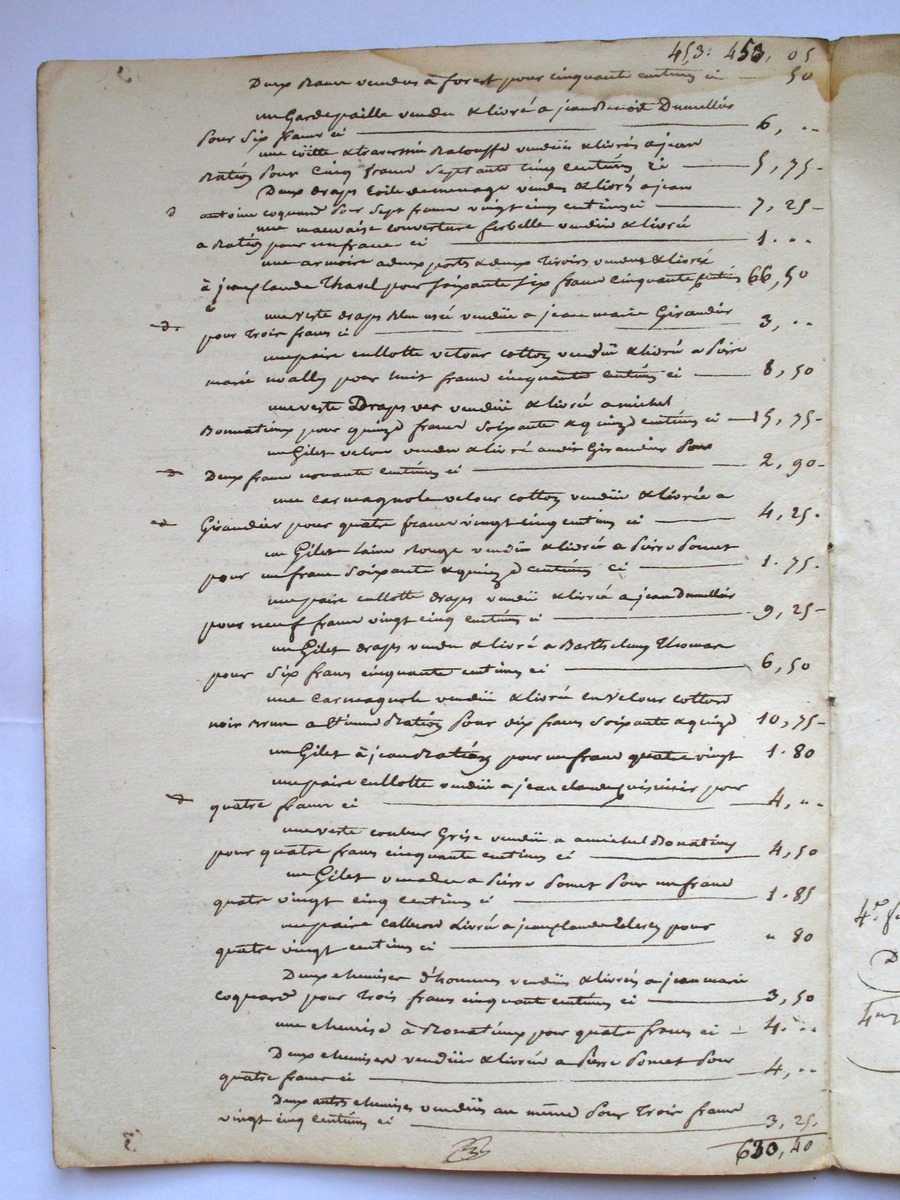 453: 453, 05
Deux vendus à forest pour cinquante centimes ci — 50
un Gardepaille vendu & livré a jean Benoit Dumellier
pour six franc ci — 6, ..
une & traversin Balouffe vendus & livrés a jean
Ration pour cinq franc septante cinq centimes ci — 5, 75
Deux draps toile de menage vendus & livrés a jean
antoine coquard pour sept franc vingt cinq centimes ci — 7, 25
une mauvaise couverture vendue & livré
a Ration pour un franc ci — 1 . ..
une armoire a deux ports & deux tiroirs vendue & livrée
à jean claude Thavel pour soixante six franc cinquante centimes 66, 50
une veste draps bleu usé vendue a jean marie Girandier
pour trois francs ci — 3, ..
une paire cullotte velour cotton vendue & livré a Pierre
marie pour huit franc cinquante centimes ci — 8, 50
une veste Draps ver vendue & livrée a michel
Bonnatieux pour quinze franc soixante & quinze centimes ci — 15, 75
un Gilet velour vendu & livré audit Girandier pour
Deux franc novante centimes ci — 2, 90
une carmagnole velour cotton vendue & livrée a
Girandier pour quatre franc vingt cinq centimes ci — 4, 25
un Gilet laine Rouge vendu & livré a Pierre Pomet
pour un franc soixante & quinze centimes ci — 1 . 75
une paire cullotte draps vendue & livrée a jean Dumellier
pour neuf franc vingt cinq centimes ci — 9, 25
un Gilet draps vendu & livré a Barthelemy Thomas
pour six francs cinquante centimes ci — 6, 50
une carmagnole vendue & livrée en velour cotton
noir brun a Etienne Ration pour dix francs soixante & quinze 10, 75
un Gilet à jean Ration pour un franc quatre vingt 1 . 80
une paire cullotte vendue a jean claude pour
quatre franc ci — 4, ..
une veste couleur Grise vendue a michel Bonatieux
pour quatre francs cinquante centimes ci — 4, 50
un Gilet vendu a Pierre Pomet pour un franc
quatre vingt cinq centimes ci — 1 . 85
une paire livré a jean claude pour
quatre vingt centimes ci — " 80
Deux chemises d'hommes vendues & livrés a jean marie
coquard pour trois francs cinquante centimes ci — 3, 50
une chemise à Bonatieux pour quatre francs ci — 4 . ..
Deux chemises vendues & livrée a Pierre Pomet pour
quatre franc ci — 4, ..
Deux autres chemises vendues au même pour trois franc
vingt cinq centimes ci — 3, 25
630, 40